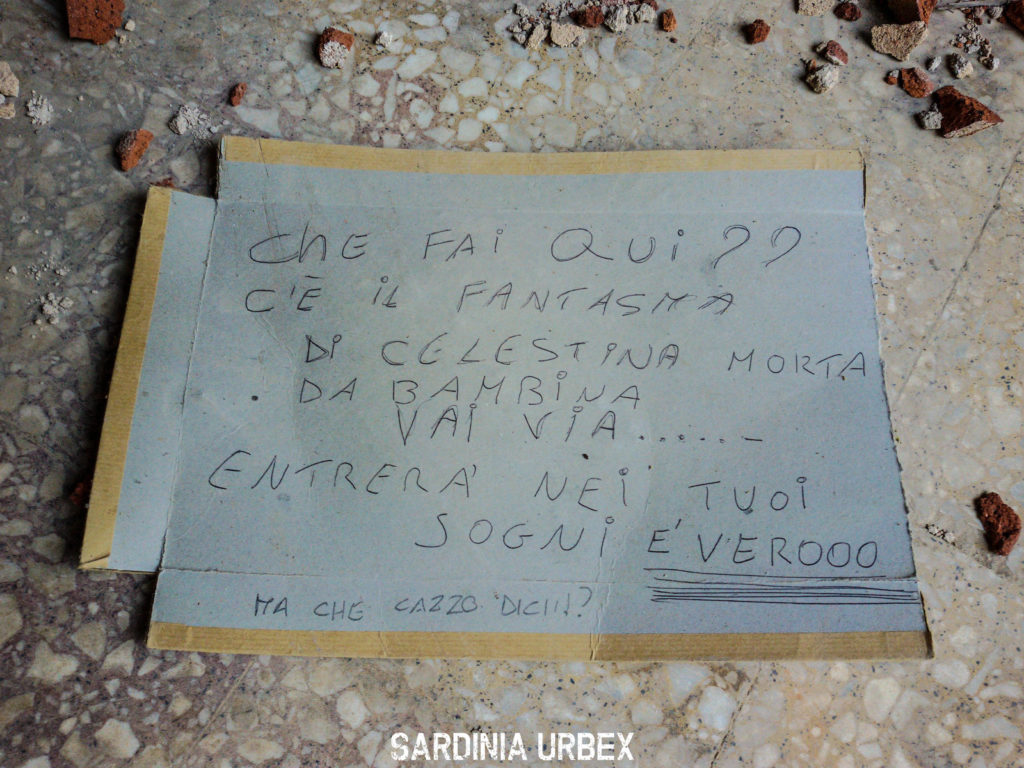 ChE FAi QUi??
C'È iL FANTASMA
Di CELESTiNA MORTA
DA BAMBiNA
VAi ViA.......
ENTRERA' NEi TUOi
SOGNi E'VEROOO
MA CHE CAZZO DICI!!?
SARDINIA URBEX